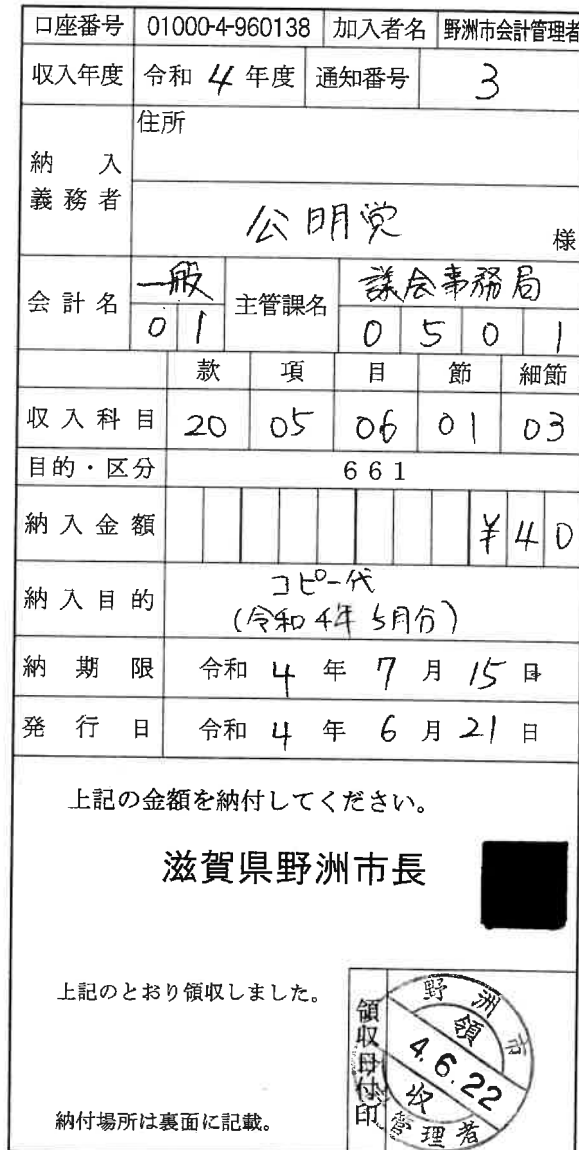 口座番号 01000-4-960138 加入者名 野洲市会計管理者
収入年度 令和 4 年度 通知番号 3
住所
納入義務者
公明党 様
会計名 一般 主管課名 議会事務局
01 0501
款 項 目 節 細節
収入科目 20 05 06 01 03
目的・区分 661
納入金額 ¥40
納入目的 コピー代
(令和4年5月分)
納期限 令和 4 年 7 月 15 日
発行日 令和 4 年 6 月 21 日
上記の金額を納付してください。
滋賀県野洲市長
上記のとおり領収しました。
領収日付印
野洲市
領
4.6.22
収
管理者
納付場所は裏面に記載。